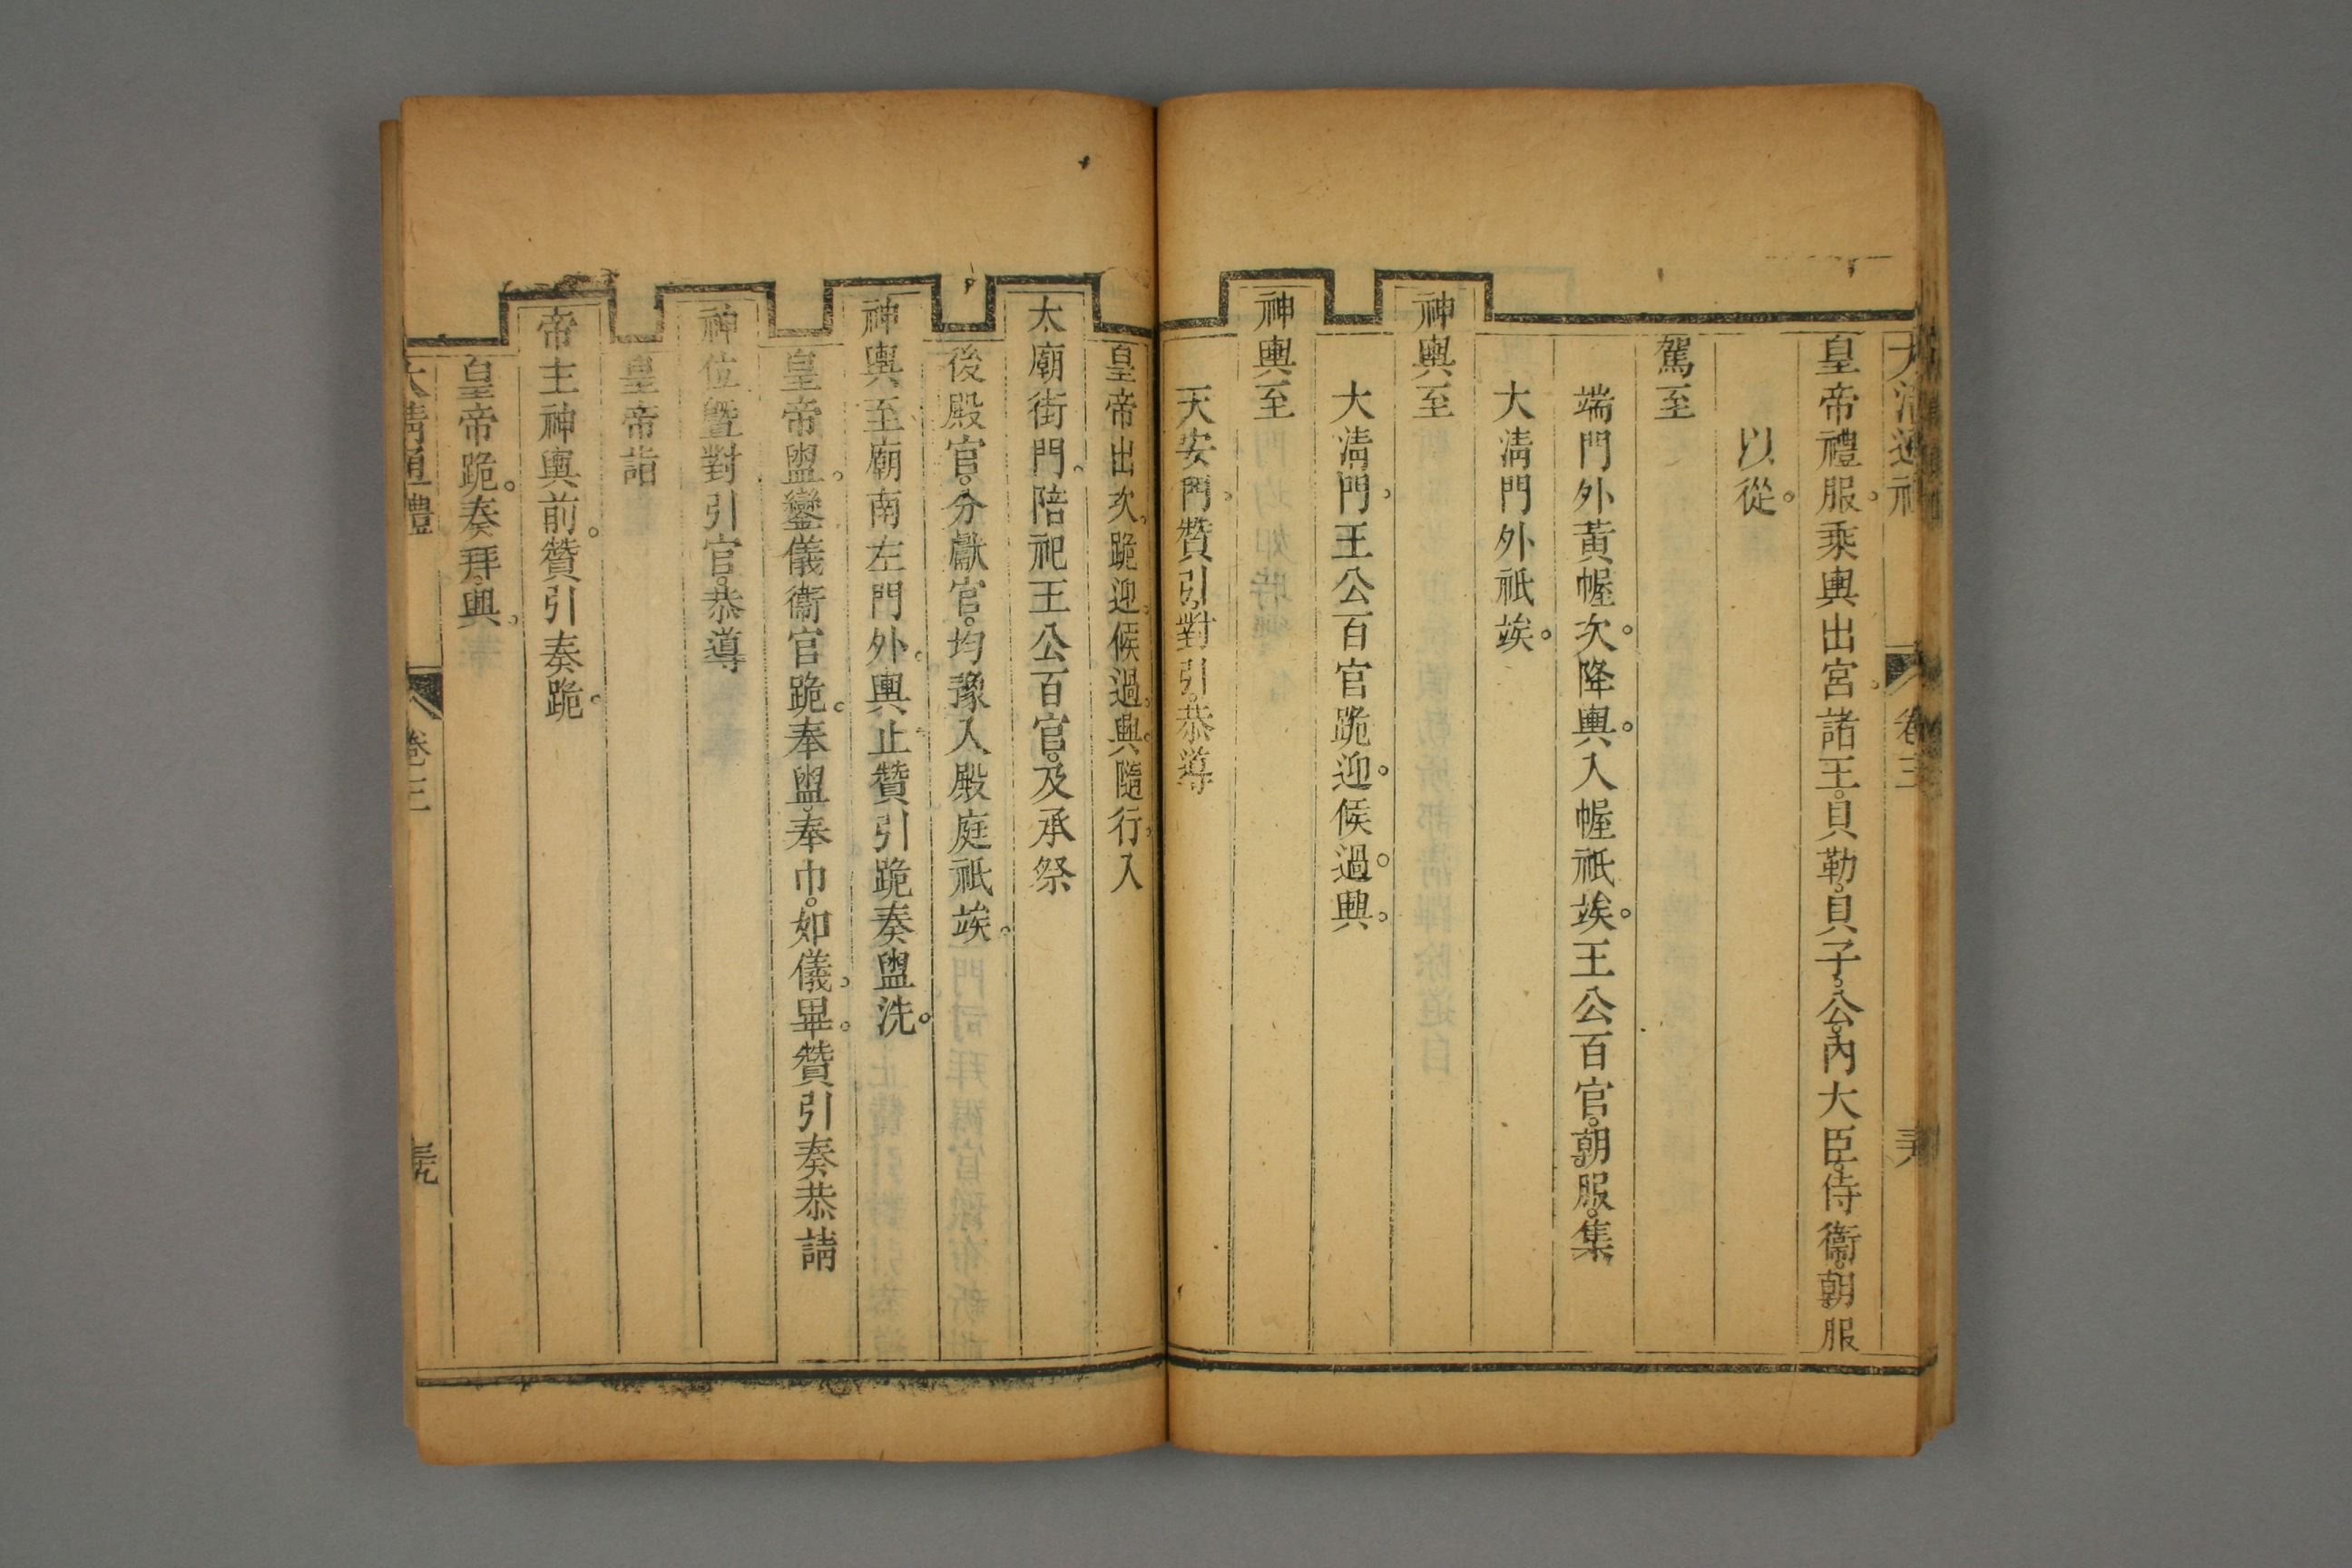 大清通禮 卷三
皇帝禮服。乘輿出宮。諸王。貝勒。貝子。公。內大臣。侍衞。朝服
以從。
駕至
端門外黃幄次。降輿。入幄祇竢。王公百官。朝服。集
大淸門外祇竢。
神輿至
大淸門。王公百官跪迎。候過。興。
神輿至
天安門。贊引。對引。恭導
皇帝出次。跪迎。候過。興。隨行。入
太廟街門。陪祀王公百官。及承祭
後殿官。分獻官。均豫入殿庭祇竢。
神輿至廟南左門外。輿止。贊引跪奏盥洗。
皇帝盥。鑾儀衞官跪。奉盥。奉巾。如儀。畢。贊引奏恭請
神位暨對引官。恭導
皇帝詣
帝主神輿前。贊引奏跪。
皇帝跪。奏拜。興。
大淸通禮 卷三 三九